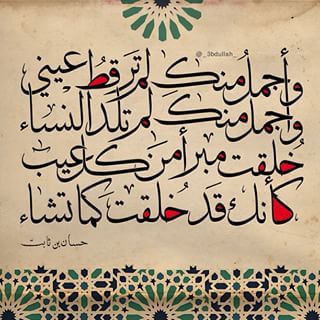 @_3bdullah_
وأجمل منك لم تر قط عيني
وأجمل منك لم تلد النساء
خلقت مبرأ من كل عيب
كأنك قد خلقت كما تشاء
حسان بن ثابت